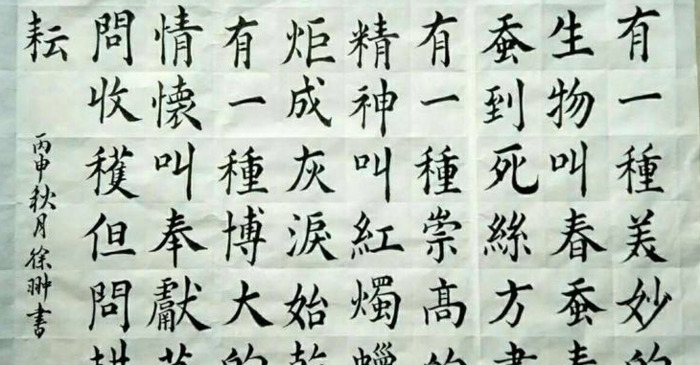 有一種美妙的
生物叫春蚕春
蚕到死絲方盡
有一種崇高的
精神叫紅燭蠟
炬成灰淚始乾
有一種博大的
情懷叫奉獻莫
問收穫但問耕
耘
丙申秋月徐翀書